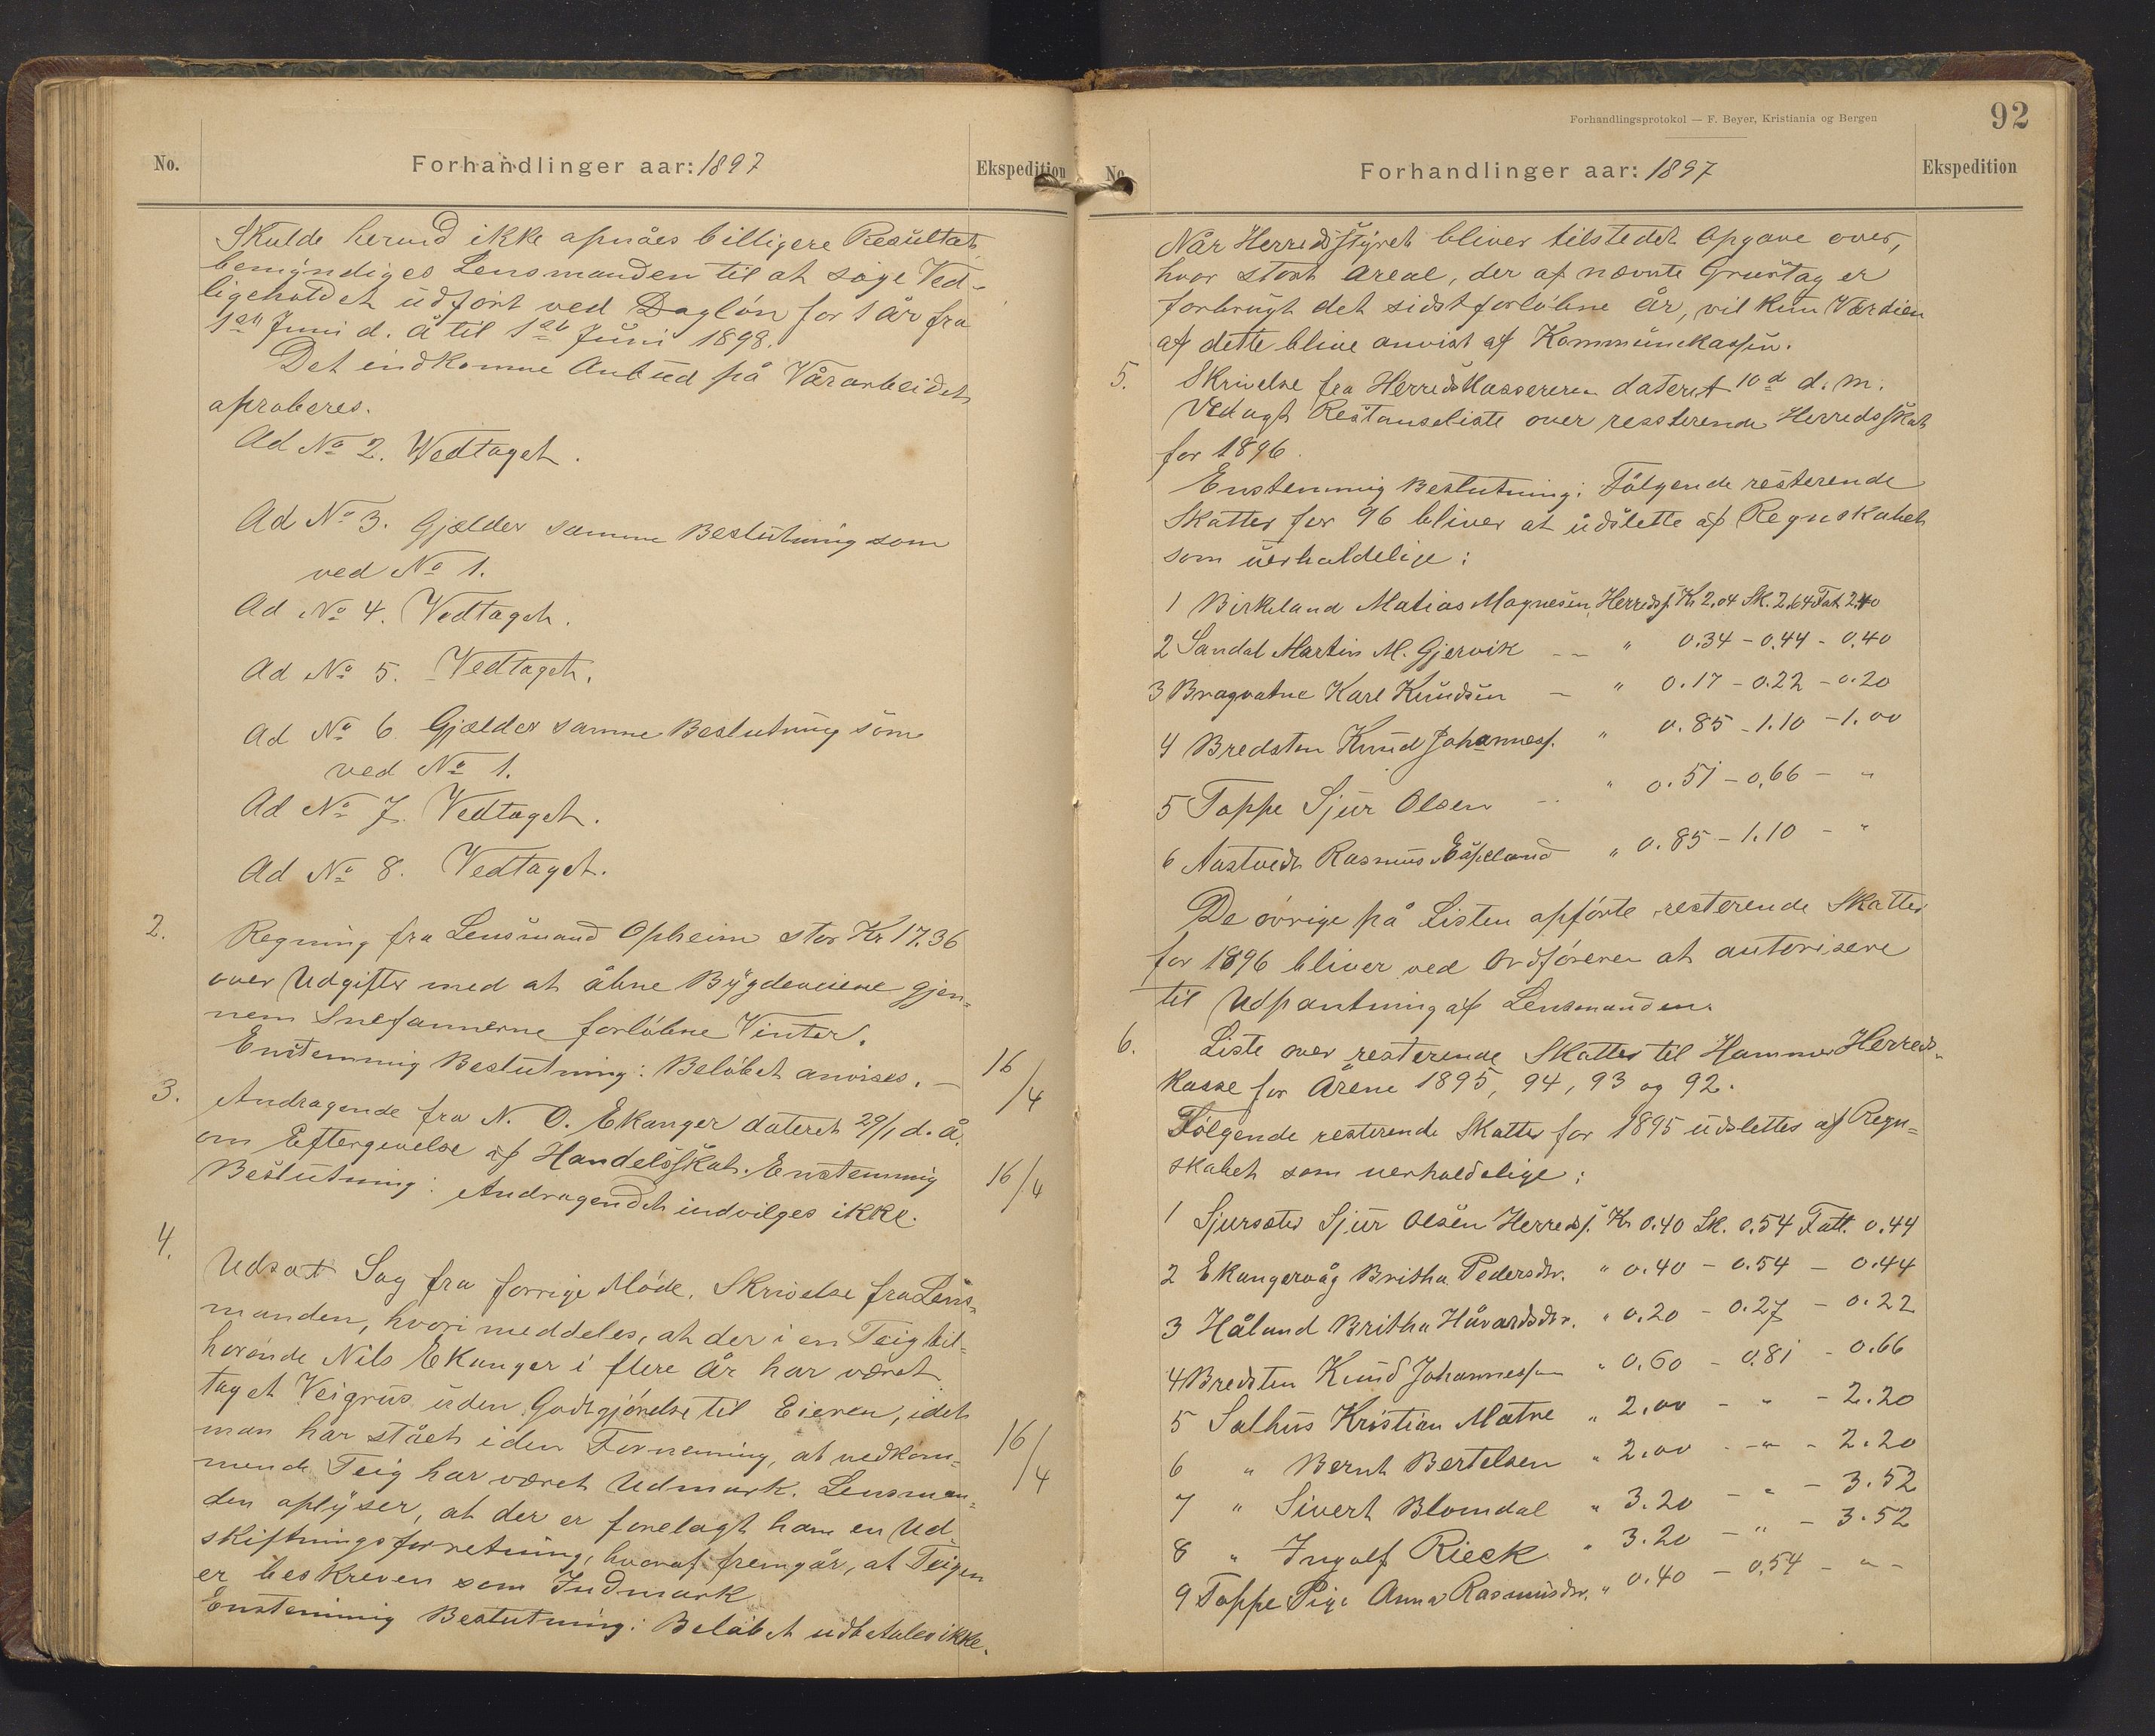 No.
Forhandlinger aar: 1897
Ekspedition
Skulde herved ikke opnåes billigere Resultat
bemyndiges Lensmanden til at søge Ved-
ligeholdet udført ved Dagløn for 1 År fra
1ste Juni d. å til 1ste Juni 1898.
Det indkomne Anbud på Vårarbeidet
aproberes.
Ad No 2. Wedtaget.
Ad No 3. Gjælder samme Beslutning som
ved No 1.
Ad No 4. Vedtaget.
Ad No 5. Vedtaget.
Ad No 6 Gjælder samme Beslutning som
ved No 1.
Ad No 7. Vedtaget.
Ad No 8. Vedtaget.
2. Regning fra Lensmand Opheim stor Kr 17.36
over Udgifter med at åbne Bygdeveiene gjen=
nem Snefannerne forløbne Vinter.
Enstemmig Beslutning: Beløbet anvises. — 16/4
3. Andragende fra N. O. Ekanger dateret 29/1 d. Å.
om Eftergivelse af Handelsskat. Enstemmig
Beslutning: Andragendet indvilges ikke. 16/4
4. Udsat Sag fra forrige Møde. Skrivelse fra Lens=
manden, hvori meddeles, at der i en Teig til=
hørende Nils Ekanger i flere År har været
taget Veigrus uden Godtgjørelse til Eieren, idet
man har stået i den Formening, at vedkom= 16/4
mende Teig har været Udmark. Lensman=
den oplyser, at der er forelagt ham en Ud-
skiftningsforretning, hvoraf fremgår, at Teigen
er beskreven som Indmark
Enstemmig Beslutning: Beløbet udbetales ikke.
Forhandlingsprotokol — F. Beyer, Kristiania og Bergen
92
No.
Forhandlinger aar: 1897
Ekspedition
Når Herredsstyret bliver tilstedet Opgave over,
hvor stort Areal, der af nævnte Grustag er
forbrugt det sidst forløbne År, vil kun Værdien
af dette blive anvist af Kommunekassen.
5. Skrivelse fra Herredskassereren dateret 10d d. M.
Vedlagt Restanseliste over resterende Herredsskat
for 1896.
Enstemmig Beslutning: Følgende resterende
Skatter for 96 bliver at udslette af Regnskabet
som uerholdelige:
1 Birkeland Matias Magnesen, Herredsf. Kr 2.04 Sk. 2.64 Fat. 2.40
2 Sandal Martin M. Gjervik — " 0.34 - 0.44 - 0.40
3 Bragvatne Karl Knudsen — " 0.17 - 0.22 - 0.20
4 Bredsten Knud Johanness. " 0.85 - 1.10 - 1.00
5 Toppe Sjur Olsen — " 0.51 - 0.66 - "
6 Aastvedt Rasmus Espeland " 0.85 - 1.10 - "
De øvrige på Listen opførte resterende Skatter
for 1896 bliver ved Ordføreren at autorisere
til Udpantning af Lensmanden.
6. Liste over resterende Skatter til Hammer Herreds-
kasse for Årene 1895, 94, 93 og 92.
Følgende resterende Skatter for 1895 udslettes af Regn=
skabet som uerholdelige:
1 Sjursæter Sjur Olsen Herredsf. Kr 0.40 Sk. 0.54 Fatt. 0.44
2 Ekangervåg Britha Pedersdtr. " 0.40 - 0.54 - 0.44
3 Håland Britha Håvardsdtr. " 0.20 - 0.27 - 0.22
4 Bredsten Knud Johannessen " 0.60 - 0.81 - 0.66
5 Salhus Kristian Matre " 2.00 - " - 2.20
6 " Bernt Bertelsen " 2.00 - " - 2.20
7 " Sivert Blomdal " 3.20 - " - 3.52
8 " Ingolf Rieck " 3.20 - " - 3.52
9 Toppe Pige Anna Rasmusdtr. " 0.40 - 0.54 - " -